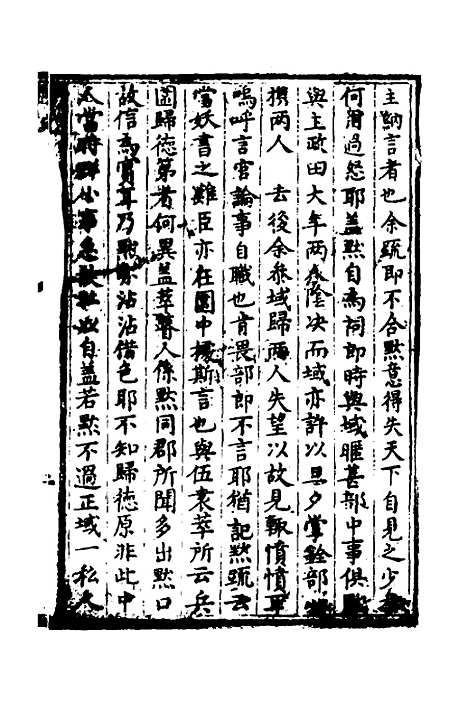 主納言者也余疏即不合黙意得失天下自見之少
何爾過怒耶蓋黙自為祠部時與域暱甚部中事俱
與主政田大年兩人隆决而域亦許以旦夕掌銓部
攬兩人 去後余叅域歸兩人失望以故見輒憤憤耳
嗚呼言官論事自職也肯畏部即不言耶猶記黙疏云
當妖書之難臣亦在圍中據斯言也與伍袁萃所云兵
圍歸德第者何異蓋萃蘇人係黙同郡所聞多出黙口
故信為實耳乃 沾沾借色耶不知歸德原非此中
人當時群小事急 自蓋若黙不過正域一私人